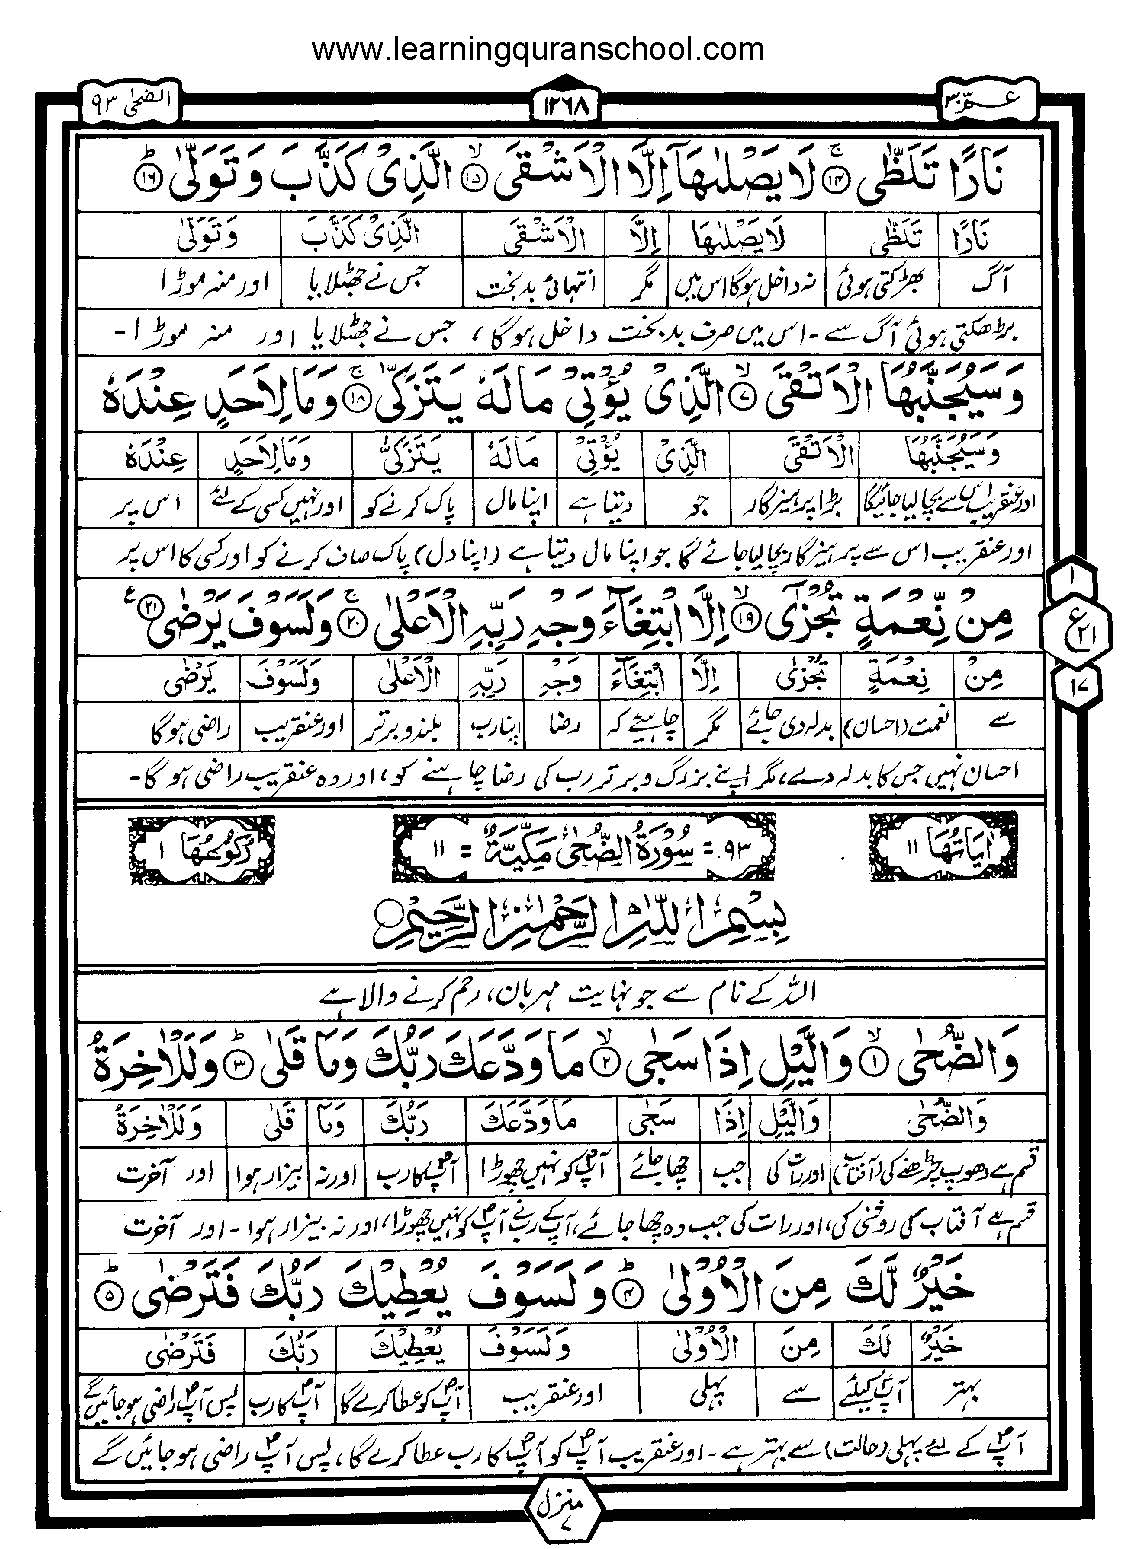 www.learningquranschool.com
عـمّ ٣٠
١٢٦٨
الضحیٰ ٩٣
نَارًا تَلَظّٰى ﴿١٤﴾ۚ لَا يَصْلٰىهَاۤ اِلَّا الْاَشْقَى ﴿١٥﴾ۙ الَّذِىْ كَذَّبَ وَتَوَلّٰى ﴿١٦﴾ؕ
نَارًا تَلَظّٰى لَا يَصْلٰىهَا اِلَّا الْاَشْقَى الَّذِىْ كَذَّبَ وَتَوَلّٰى
آگ بھڑکتی ہوئی نہ داخل ہوگا اس میں مگر انتہائی بدبخت جس نے جھٹلایا اور منہ موڑا
بڑھکتی ہوئی آگ سے - اس میں صرف بدبخت داخل ہوگا، جس نے جھٹلایا اور منہ موڑا -
وَسَيُجَنَّبُهَا الْاَتْقَى ﴿١٧﴾ۙ الَّذِىْ يُؤْتِىْ مَالَهٗ يَتَزَكّٰى ﴿١٨﴾ۚ وَمَا لِاَحَدٍ عِنْدَهٗ
وَسَيُجَنَّبُهَا الْاَتْقَى الَّذِىْ يُؤْتِىْ مَالَهٗ يَتَزَكّٰى وَمَا لِاَحَدٍ عِنْدَهٗ
اور عنقریب اس سے بچا لیا جائیگا بڑا پرہیزگار جو دیتا ہے اپنا مال پاک کرنے کو اور نہیں کسی کے لئے اس پر
اور عنقریب اس سے پرہیزگار بچا لیا جائے گا جو اپنا مال دیتا ہے (اپنا دل) پاک صاف کرنے کو اور کسی کا اس پر
مِنْ نِّعْمَةٍ تُجْزٰٓى ﴿١٩﴾ۙ اِلَّا ابْتِغَآءَ وَجْهِ رَبِّهِ الْاَعْلٰى ﴿٢٠﴾ۚ وَلَسَوْفَ يَرْضٰى ﴿٢١﴾ع
مِنْ نِّعْمَةٍ تُجْزٰى اِلَّا ابْتِغَآءَ وَجْهِ رَبِّهِ الْاَعْلٰى وَلَسَوْفَ يَرْضٰى
سے نعمت (احسان) بدلہ دی جائے مگر چاہیے کہ رضا اپنا رب بلند و برتر اور عنقریب راضی ہوگا
احسان نہیں جس کا بدلہ دے، مگر اپنے بزرگ و برتر رب کی رضا چاہنے کو، اور وہ عنقریب راضی ہو گا -
١
ع ٢١
١٧
اٰيَاتُهَا ١١
٩٣ = سُوْرَةُ الضُّحٰى مَكِّيَّةٌ = ١١
رُكُوْعُهَا ١
بِسْمِ اللّٰهِ الرَّحْمٰنِ الرَّحِيْمِ
اللہ کے نام سے جو نہایت مہربان، رحم کرنے والا ہے
وَالضُّحٰى ﴿١﴾ۙ وَالَّيْلِ اِذَا سَجٰى ﴿٢﴾ۙ مَا وَدَّعَكَ رَبُّكَ وَمَا قَلٰى ﴿٣﴾ؕ وَلَلْاٰخِرَةُ
وَالضُّحٰى وَالَّيْلِ اِذَا سَجٰى مَا وَدَّعَكَ رَبُّكَ وَمَا قَلٰى وَلَلْاٰخِرَةُ
قسم ہے دھوپ چڑھنے کی (آفتاب) اور رات کی جب چھا جائے آپؐ کو نہیں چھوڑا آپؐ کا رب اور نہ بیزار ہوا اور آخرت
قسم ہے آفتاب کی روشنی کی، اور رات کی جب وہ چھا جائے، آپؐ کے رب نے آپؐ کو نہیں چھوڑا، اور نہ بیزار ہوا - اور آخرت
خَيْرٌ لَّكَ مِنَ الْاُوْلٰى ﴿٤﴾ؕ وَلَسَوْفَ يُعْطِيْكَ رَبُّكَ فَتَرْضٰى ﴿٥﴾ؕ
خَيْرٌ لَّكَ مِنَ الْاُوْلٰى وَلَسَوْفَ يُعْطِيْكَ رَبُّكَ فَتَرْضٰى
بہتر آپؐ کیلئے سے پہلی اور عنقریب آپؐ کو عطا کرے گا آپؐ کا رب پس آپؐ راضی ہو جائیں گے
آپؐ کے لئے پہلی (حالت) سے بہتر ہے - اور عنقریب آپؐ کو آپؐ کا رب عطا کرے گا، پس آپؐ راضی ہو جائیں گے
منزل ٧